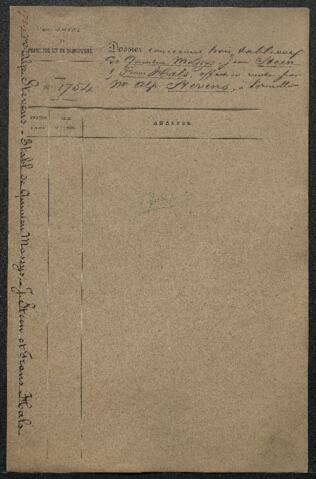 PEINTURE ET DE SCULPTURE.
Dossier concernant trois tableaux
de Quinten Massys, Jean Steen
& Frans Hals, offerts en vente par
Mr Alp. Stevens, à Bruxelles
No 1754
ANNEXES.
Mr Alp. Stevens. - 3 tabl. de Quinten Massys, J. Steen et Frans Hals.